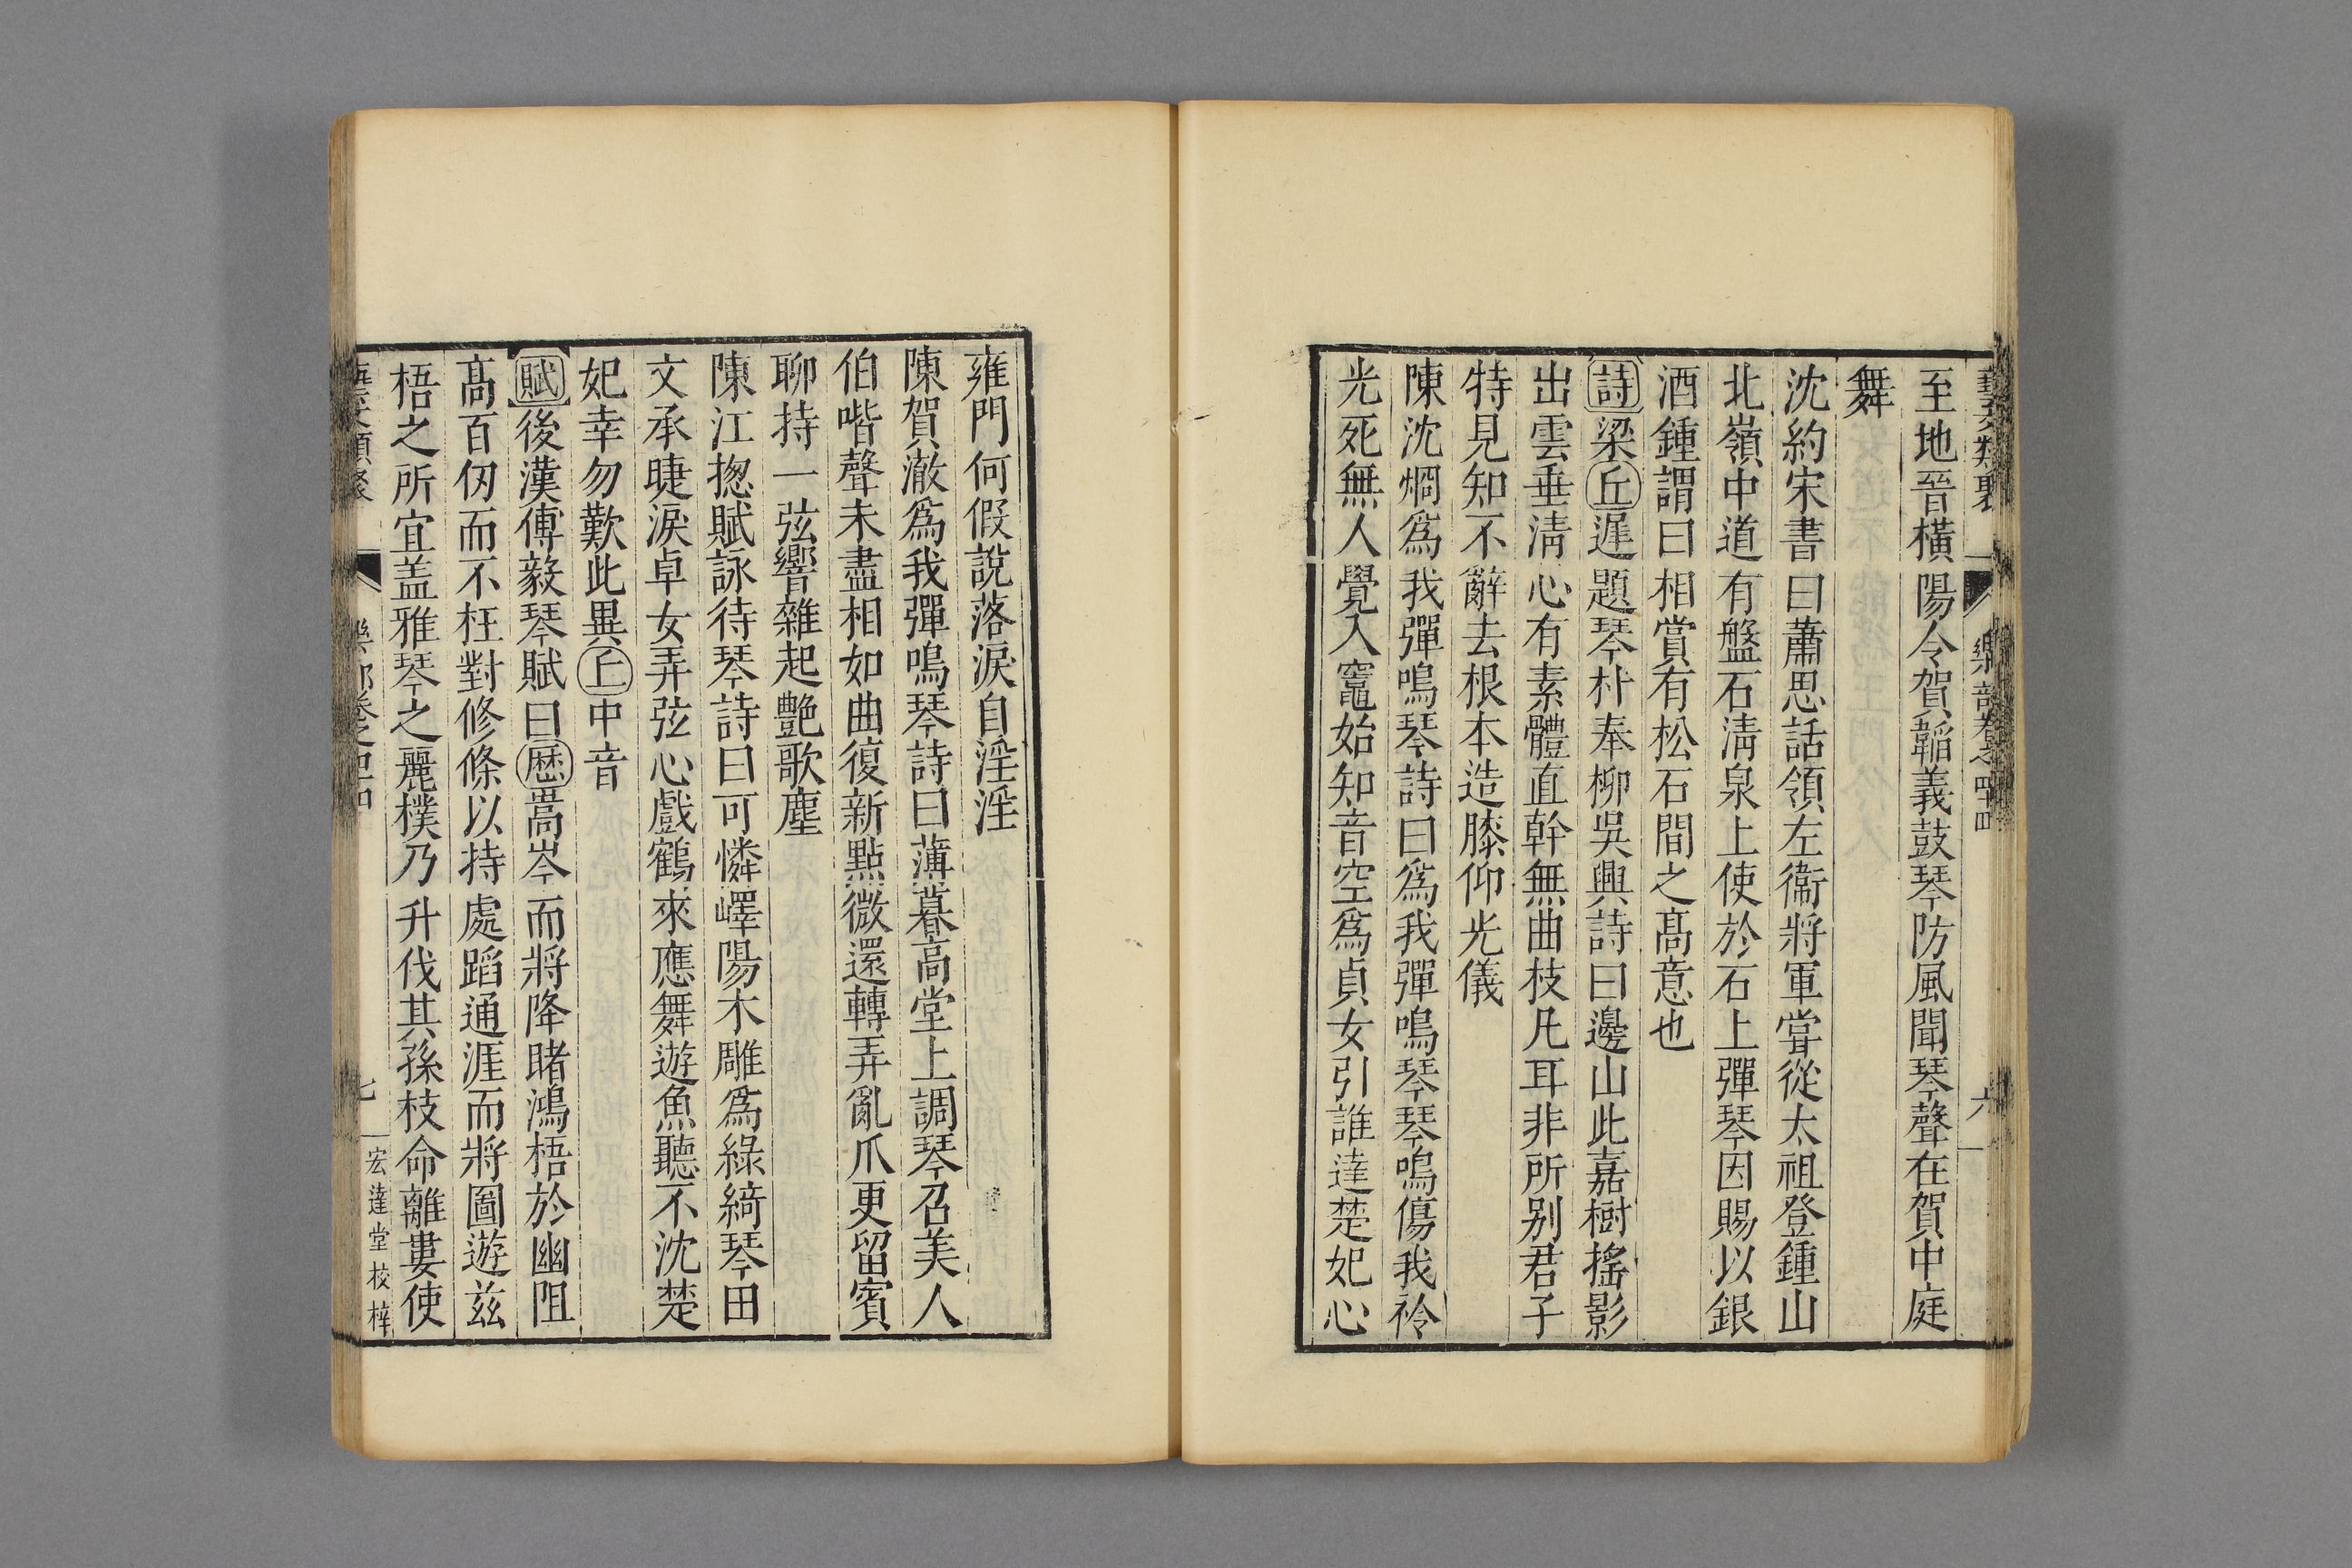 藝文類聚 樂部卷之四十四 六
至地晉橫陽令賀韜義鼓琴防風聞琴聲在賀中庭
舞
沈約宋書曰蕭思話領左衞將軍甞從太祖登鍾山
北嶺中道有盤石淸泉上使於石上彈琴因賜以銀
酒鍾謂曰相賞有松石間之髙意也
詩梁丘遲題琴朴奉柳吳興詩曰邊山此嘉樹搖影
出雲垂淸心有素體直幹無曲枝凡耳非所别君子
特見知不辭去根本造膝仰光儀
陳沈烱爲我彈鳴琴詩曰爲我彈鳴琴琴鳴傷我衿
光死無人覺入竈始知音空爲貞女引誰達楚妃心
雍門何假說落淚自淫淫
陳賀澈爲我彈鳴琴詩曰薄暮高堂上調琴召美人
伯喈聲未盡相如曲復新點微還轉弄亂爪更留賓
聊持一弦響雜起艷歌塵
陳江揔賦詠待琴詩曰可憐嶧陽木雕爲綠綺琴田
文承睫淚卓女弄弦心戲鶴來應舞遊魚聽不沈楚
妃幸勿歎此異丘中音
賦後漢傅毅琴賦曰歷嵩岑而將降睹鴻梧於幽阻
髙百仭而不枉對修條以持處蹈通涯而將圖遊茲
梧之所宜盖雅琴之麗樸乃升伐其孫枝命離婁使
藝文類聚 樂部卷之四十四 七 宏達堂校梓